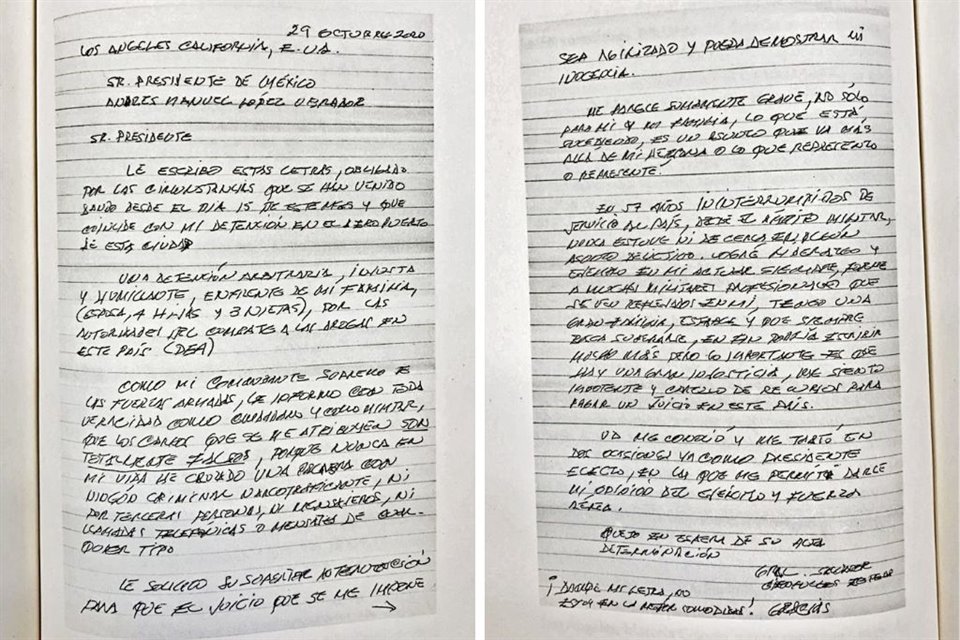 29 OCTUBRE 2020
LOS ANGELES CALIFORNIA, E.UA.
SR. PRESIDENTE DE MÉXICO
ANDRES MANUEL LÓPEZ OBRADOR
SR. PRESIDENTE
LE ESCRIBO ESTAS LETRAS, OBLIGADO
POR LAS CIRCUNSTANCIAS QUE SE HAN VENIDO
DANDO DESDE EL DIA 15 DE ESTE MES Y QUE
COINCIDE CON MI DETENCIÓN EN EL AEROPUERTO
DE ESTA CIUDAD
UNA DETENCIÓN ARBITRARIA, INJUSTA
Y HUMILLANTE, ENFRENTE DE MI FAMILIA,
(ESPOSA, 4 HIJAS Y 3 NIETAS), POR LAS
AUTORIDADES DEL COMBATE A LAS DROGAS EN
ESTE PAÍS (DEA)
COMO MI COMANDANTE SUPREMO DE
LAS FUERZAS ARMADAS, LE INFORMO CON TODA
VERACIDAD COMO CIUDADANO Y COMO MILITAR,
QUE LOS CARGOS QUE SE ME ATRIBUYEN SON
TOTALMENTE FALSOS, PORQUE NUNCA EN
MI VIDA HE CRUZADO UNA PALABRA CON
NINGÚN CRIMINAL NARCOTRAFICANTE, NI
POR TERCERAS PERSONAS, NI MENSAJEROS, NI
LLAMADAS TELEFÓNICAS O MENSAJES DE CUAL-
QUIER TIPO
LE SOLICITO SU SUPERIOR INTERVENCIÓN
PARA QUE EL JUICIO QUE SE ME IMPONE
→
SEA AGILIZADO Y PUEDA DEMOSTRAR MI
INOCENCIA.
ME PARECE SUMAMENTE GRAVE, NO SÓLO
PARA MI Y MI FAMILIA, LO QUE ESTÁ
SUCEDIENDO, ES UN ASUNTO QUE VA MÁS
ALLÁ DE MI PERSONA O LO QUE REPRESENTO
O REPRESENTÉ.
EN 57 AÑOS ININTERRUMPIDOS DE
SERVICIO AL PAÍS, DESDE EL ÁMBITO MILITAR,
NUNCA ESTUVE NI DE CERCA EN ALGÚN
ASUNTO DELICTIVO. LOGRÉ LIDERAZGO Y
EJEMPLO EN MI ACTUAR SIEMPRE, FORMÉ
A MUCHOS MILITARES PROFESIONALES QUE
SE VEN REFLEJADOS EN MI, TENGO UNA
GRAN FAMILIA, ESTABLE Y QUE SIEMPRE
BUSCA SUPERARSE, EN FIN PODRÍA ESCRIBIR
MUCHO MÁS PERO LO IMPORTANTE ES QUE
HAY UNA GRAN INJUSTICIA, ME SIENTO
IMPOTENTE Y CARENTE DE RECURSOS PARA
PAGAR UN JUICIO EN ESTE PAÍS.
UD ME CONOCIÓ Y ME TRATÓ EN
DOS OCASIONES YA COMO PRESIDENTE
ELECTO, EN LA QUE ME PERMITÍ DARLE
MI OPINIÓN DEL EJÉRCITO Y FUERZA
AÉREA.
QUEDO EN ESPERA DE SU ALTA
DETERMINACIÓN
GRAL. SALVADOR
CIENFUEGOS ZEPEDA
¡DISCULPE MI LETRA, NO
ESTOY EN LA MEJOR COMODIDAD! GRACIAS